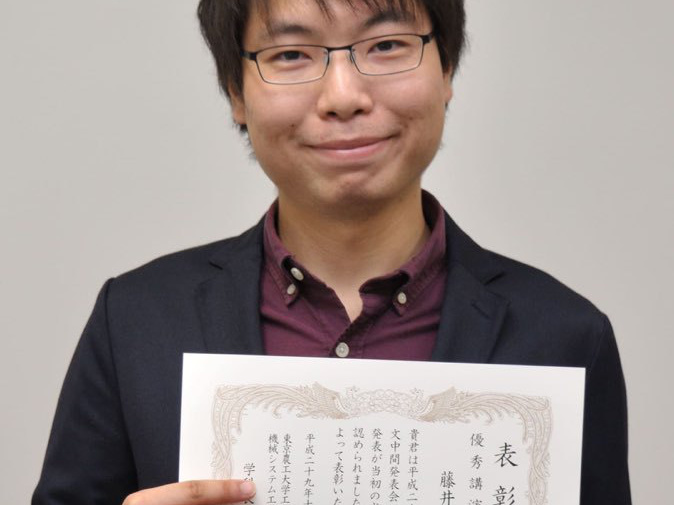 表彰
優秀講演
藤井
貴君は平成二
文中間発表会
発表が当初の
認められました
よって表彰いた
平成二十九年十
東京農工大学工
機械システム工
学科